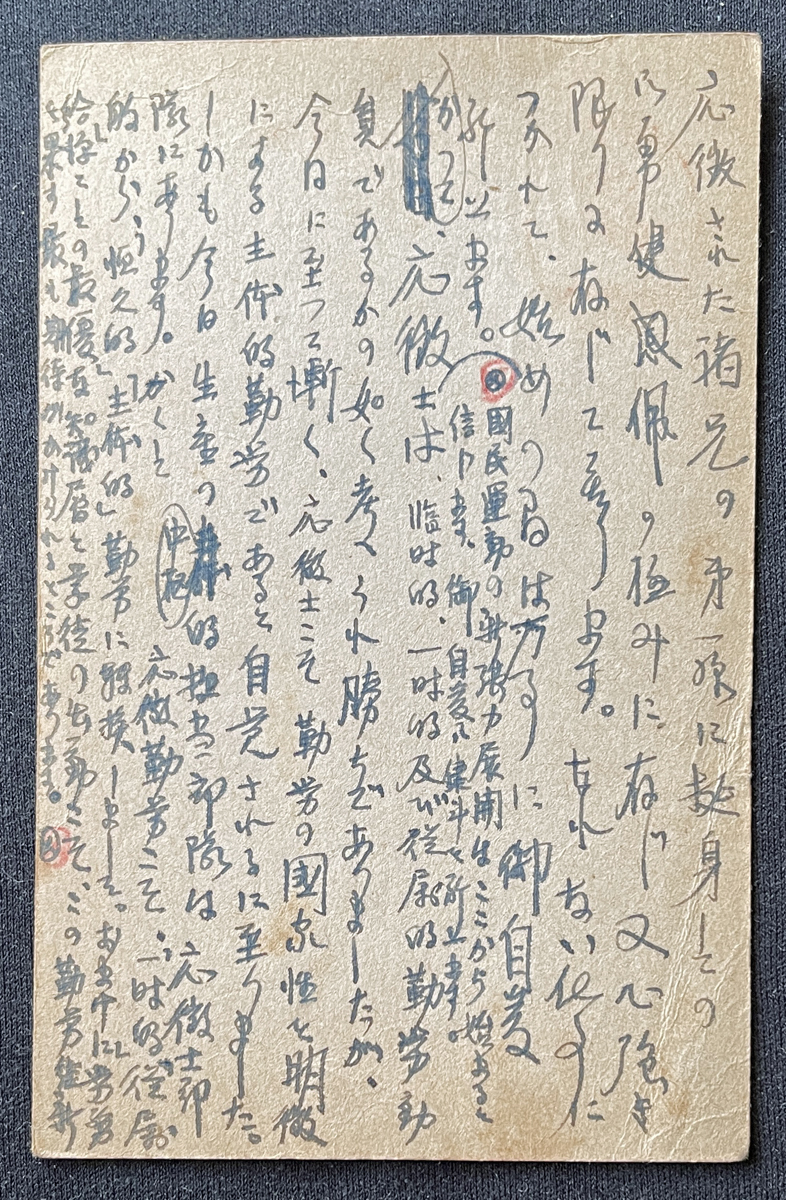 応徴された諸兄の第一線に挺身しての
御勇健感佩の極みに存じ又心強き
限りに存じて居ります。なれない仕事に
つかれて、始めの間は万事に御自愛
祈上ます。
國民運動の新張力展開はここから始まると
信じます。御自愛御健斗を祈上ます。
かつて、応徴士は、臨時的、一時的及び従屬的勤労動
員であるかの如く考へられ勝ちでありましたが、
今日に至って漸く、応徴士こそ勤労の國家性を明徴
にする主体的勤労であると自覚されるに至りました。
しかも今日生産の中核的担当部隊は応徴士部
隊にあります。かくして応徴勤労こそ、一時的「従屬
的」から、恒久的「主体的」勤労に転換しまして。
こその最優な知識層と学徒の出動こそ、この勤労維新
を果す最も期待がかけられるところであります。